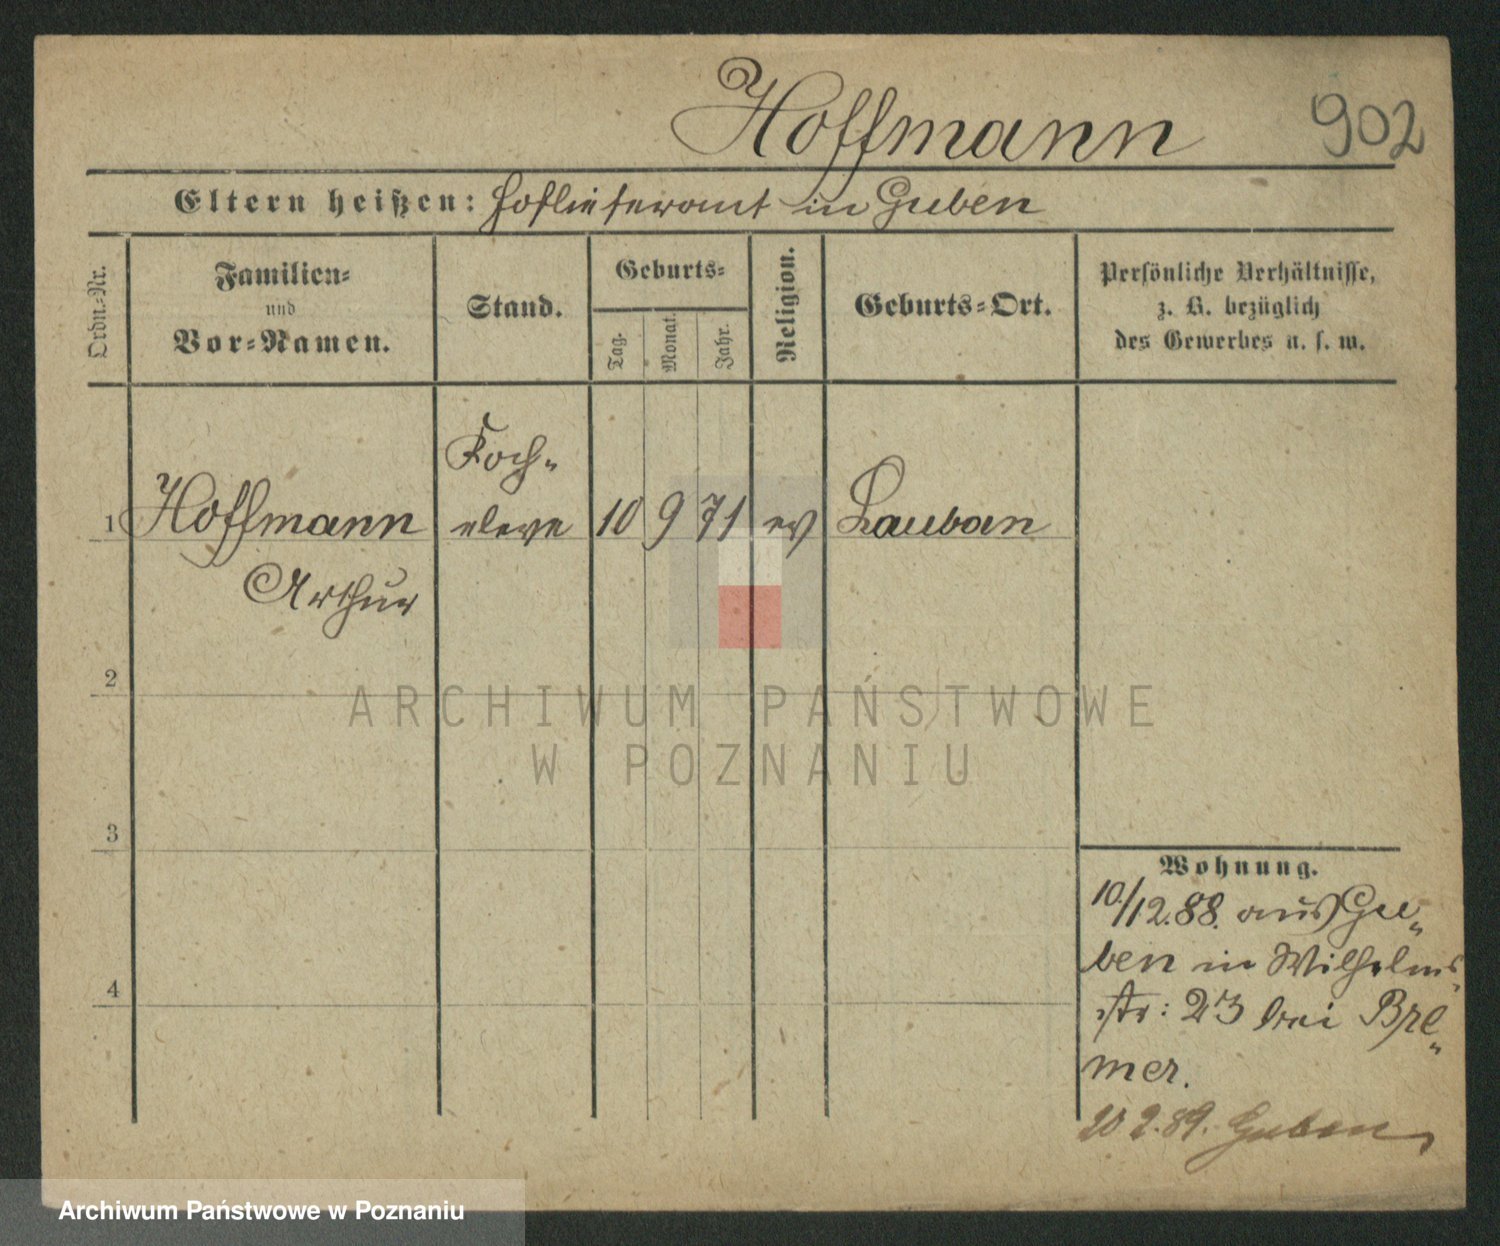 Hoffmann 902
Eltern heißen: Hoflieferant in Guben
Ordn.-Nr.
Familien-
und
Vor-Namen.
Stand.
Geburts-
Tag.
Monat.
Jahr.
Religion.
Geburts-Ort.
Persönliche Verhältnisse,
z. B. bezüglich
des Gewerbes u. s. w.
Koch-
1 Hoffmann eleve 10 9 71 ev Lauban
Arthur
2
ARCHIWUM PAŃSTWOWE
W POZNANIU
3
4
Wohnung.
10./12.88. aus Gu-
ben in Wilhelms-
str: 23 bei Bre-
mer.
20 2.89. Guben
Archiwum Państwowe w Poznaniu